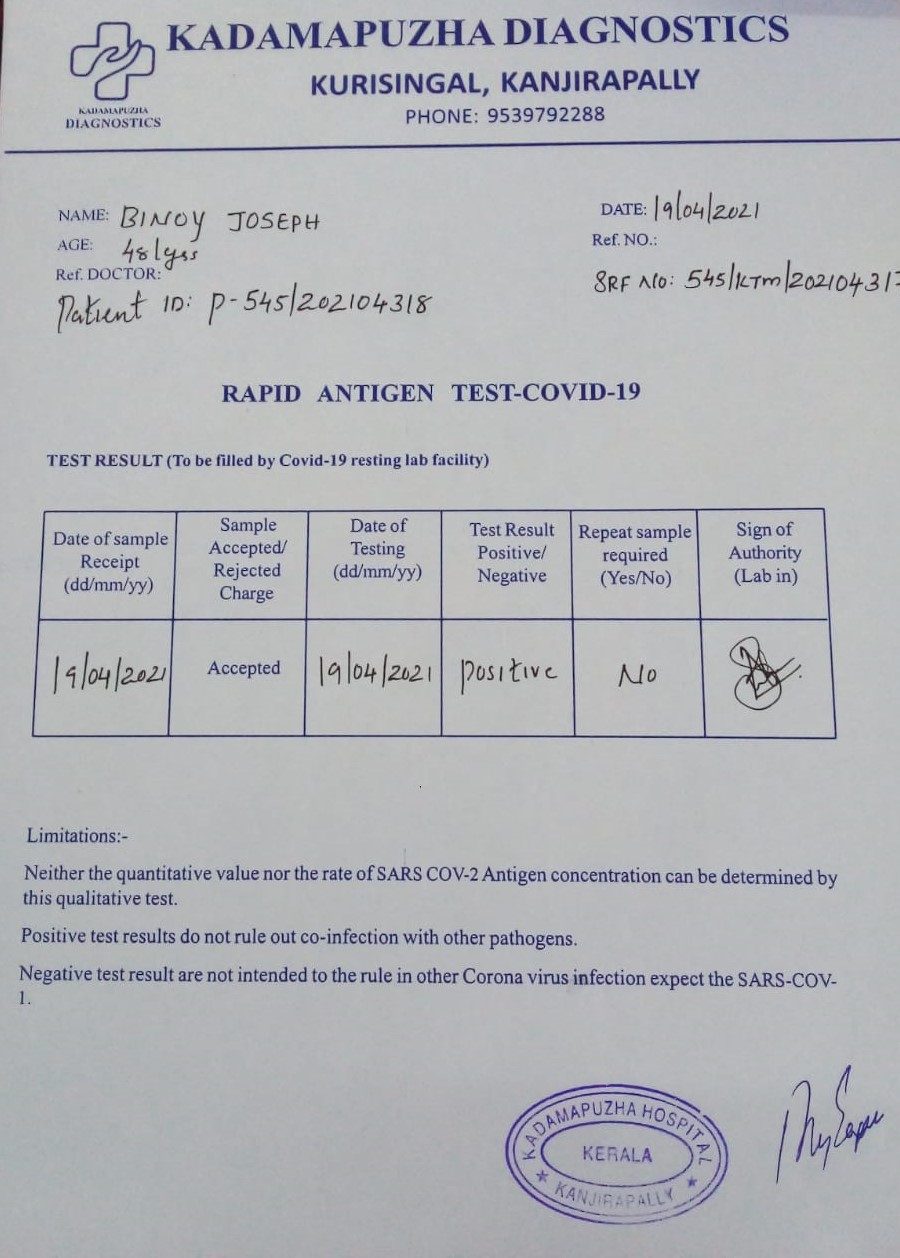 KADAMAPUZHA DIAGNOSTICS
KURISINGAL, KANJIRAPALLY
PHONE: 9539792288
KADAMAPUZHA
DIAGNOSTICS
NAME: BINOY JOSEPH
DATE: 19/04/2021
AGE: 48/yrs
Ref. NO.:
Ref. DOCTOR:
SRF NO: 545/KTM/20210431
Patient ID: P-545/202104318
RAPID ANTIGEN TEST-COVID-19
TEST RESULT (To be filled by Covid-19 resting lab facility)
Date of sample
Receipt
(dd/mm/yy)
Sample
Accepted/
Rejected
Charge
Date of
Testing
(dd/mm/yy)
Test Result
Positive/
Negative
Repeat sample
required
(Yes/No)
Sign of
Authority
(Lab in)
19/04/2021
Accepted
19/04/2021
positive
No
Limitations:-
Neither the quantitative value nor the rate of SARS COV-2 Antigen concentration can be determined by
this qualitative test.
Positive test results do not rule out co-infection with other pathogens.
Negative test result are not intended to the rule in other Corona virus infection expect the SARS-COV-
1.
KADAMAPUZHA HOSPITAL
KERALA
KANJIRAPALLY